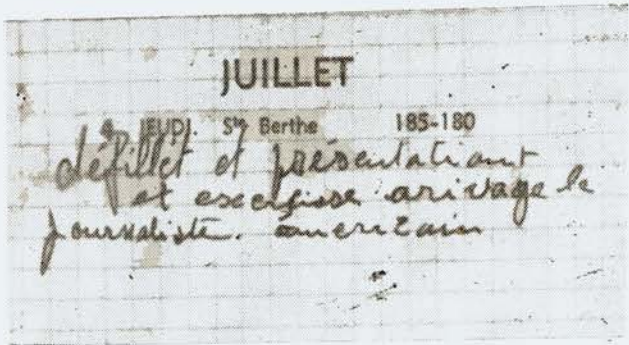 JUILLET
4 JEUDI. Ste Berthe 185-180
défillét et présentationt
et exercisse arivage le
journaliste. américain